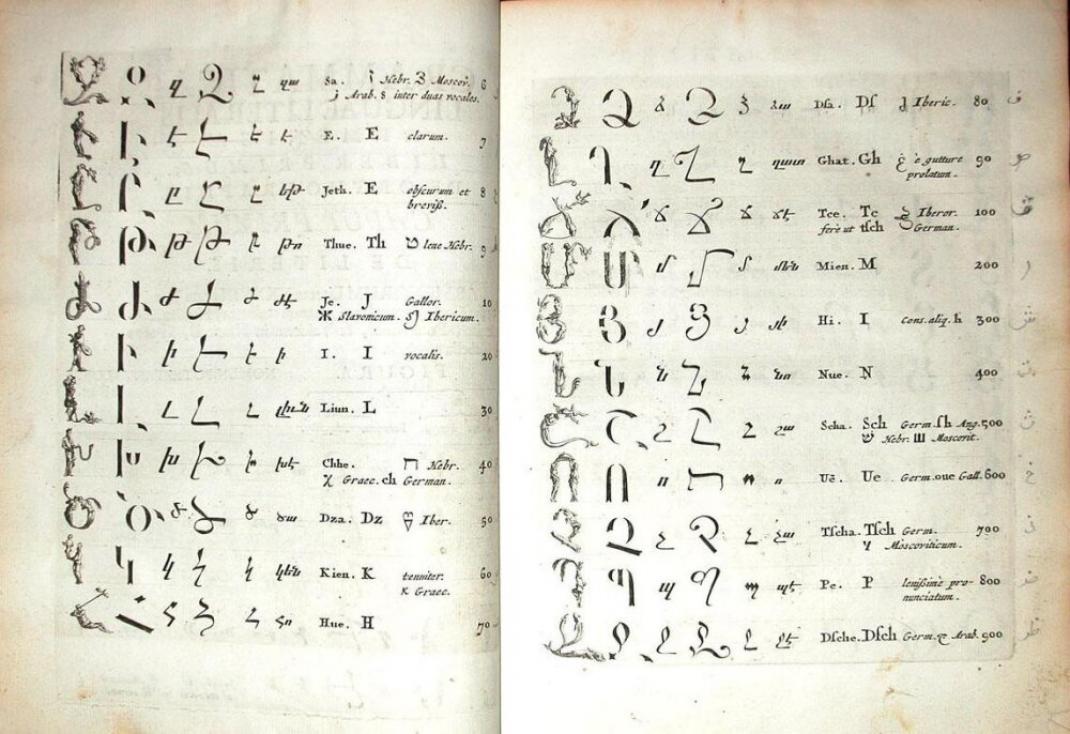 զ Զ զ զա Sa. Hebr. Moscov. 6
Arab. s inter duas vocales.
է Է է է E. E clarum. 7
ը Ը ը եթ Jeth. E obscurum et 8
breviss.
Թ թ Թ թ թո Thue. Th ט lene Hebr. 9
Ժ ժ Ժ ժ ժէ Je. J Gallor. 10
Ж Slavonicum. Ibericum.
Ի ի ի ի I. I vocalis. 20
Լ լ Լ լ լիւն Liun. L 30
Խ խ Խ խ խէ Chhe. ח Hebr. 40
χ Graec. ch German.
Ծ ծ Ծ ծ ծա Dza. Dz Iber. 50
Կ կ Կ կ կեն Kien. K tenuiter. 60
κ Graec.
Հ հ Հ հ հո Hue. H 70
Ձ ձ Ձ ձ ձա Dſa. Dſ Iberic. 80
Ղ ղ Ղ ղ ղատ Ghat. Gh è gutture 90
prolatum.
Ճ ճ Ճ ճ ճէ Tee. Te Iberor. 100
fere ut tſch German.
Մ մ Մ մ մեն Mien. M 200
Յ յ Յ յ յի Hi. I Cons. aliq. h 300
Ն ն Ն ն նո Nue. N 400
Շ շ Շ շ շա Scha. Sch Germ. ſh Ang. 500
ש Hebr. Ш Moscovit.
Ո ո Ո ո ո Ue. Ue Germ. oue Gall. 600
Չ չ Չ չ չա Tſcha. Tſch Germ. 700
Moscoviticum.
Պ պ Պ պ պէ Pe. P leniſſime pro- 800
nunciatum.
Ջ ջ Ջ ջ ջէ Dſche. Dſch Germ. Arab. 900